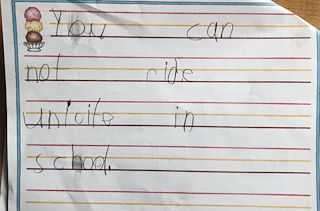 You can
not ride
unicile in
school.